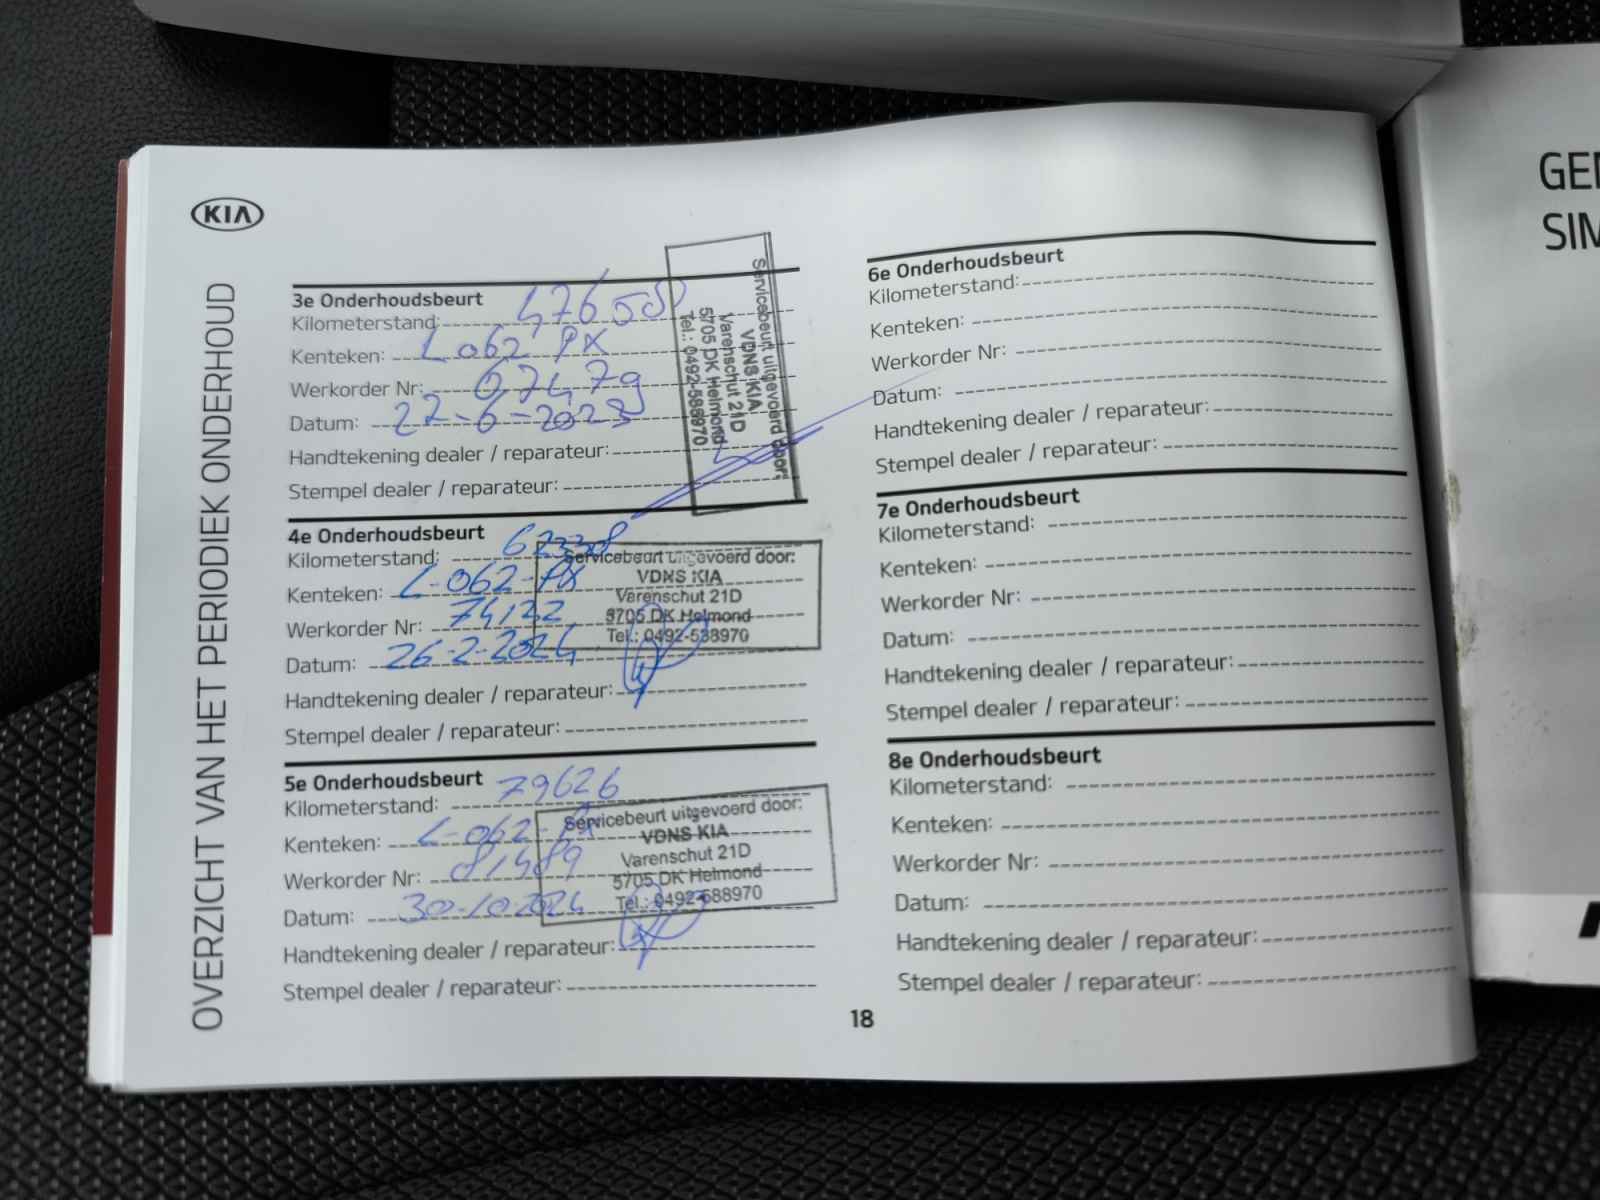 KIA
OVERZICHT VAN HET PERIODIEK ONDERHOUD
3e Onderhoudsbeurt
Kilometerstand:
Kenteken: L 062 PX
Werkorder Nr: 67479
Datum: 22-6-2023
Handtekening dealer / reparateur:
Stempel dealer / reparateur:
Servicebeurt uitgevoerd door:
VDNS KIA
Varenschut 21D
5705 DK Helmond
Tel.: 0492-588970
4e Onderhoudsbeurt
Kilometerstand: 62338
Kenteken: L-062-PX
Werkorder Nr: 74122
Datum: 26-2-2024
Handtekening dealer / reparateur:
Stempel dealer / reparateur:
Servicebeurt uitgevoerd door:
VDNS KIA
Varenschut 21D
5705 DK Helmond
Tel.: 0492-588970
5e Onderhoudsbeurt
Kilometerstand: 79626
Kenteken: L-062-PX
Werkorder Nr: 81489
Datum: 30-10-2024
Handtekening dealer / reparateur:
Stempel dealer / reparateur:
Servicebeurt uitgevoerd door:
VDNS KIA
Varenschut 21D
5705 DK Helmond
Tel.: 0492-588970
6e Onderhoudsbeurt
Kilometerstand:
Kenteken:
Werkorder Nr:
Datum:
Handtekening dealer / reparateur:
Stempel dealer / reparateur:
7e Onderhoudsbeurt
Kilometerstand:
Kenteken:
Werkorder Nr:
Datum:
Handtekening dealer / reparateur:
Stempel dealer / reparateur:
8e Onderhoudsbeurt
Kilometerstand:
Kenteken:
Werkorder Nr:
Datum:
Handtekening dealer / reparateur:
Stempel dealer / reparateur:
18
GE
SI